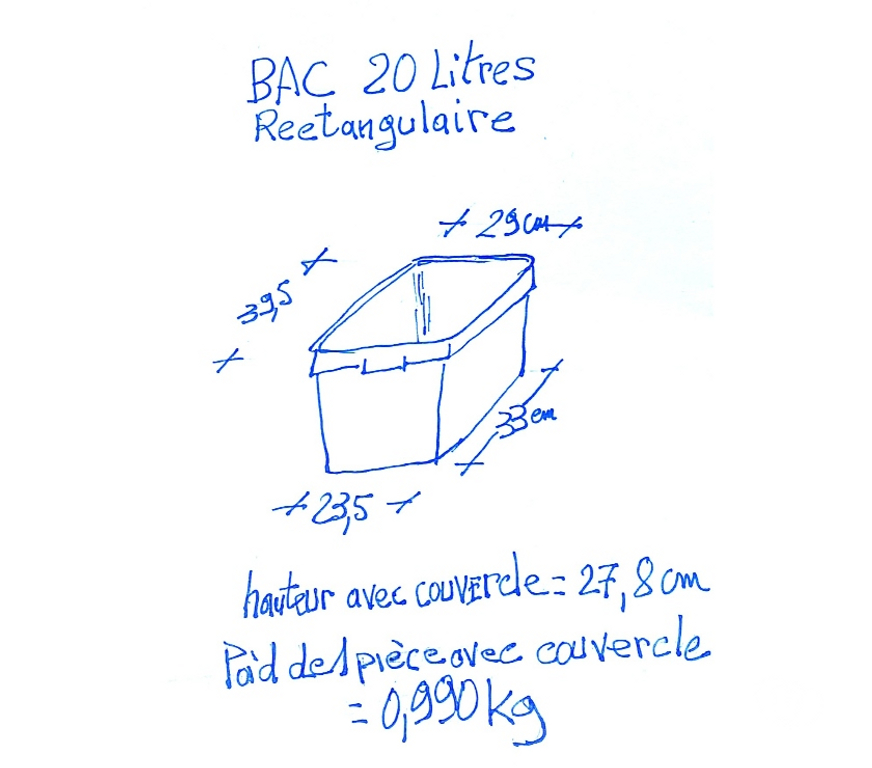 BAC 20 Litres
Reetangulaire
29 cm
39,5
33 cm
23,5
hauteur avec couvercle = 27,8 cm
Poid de 1 pièce avec couvercle
= 0,990 kg